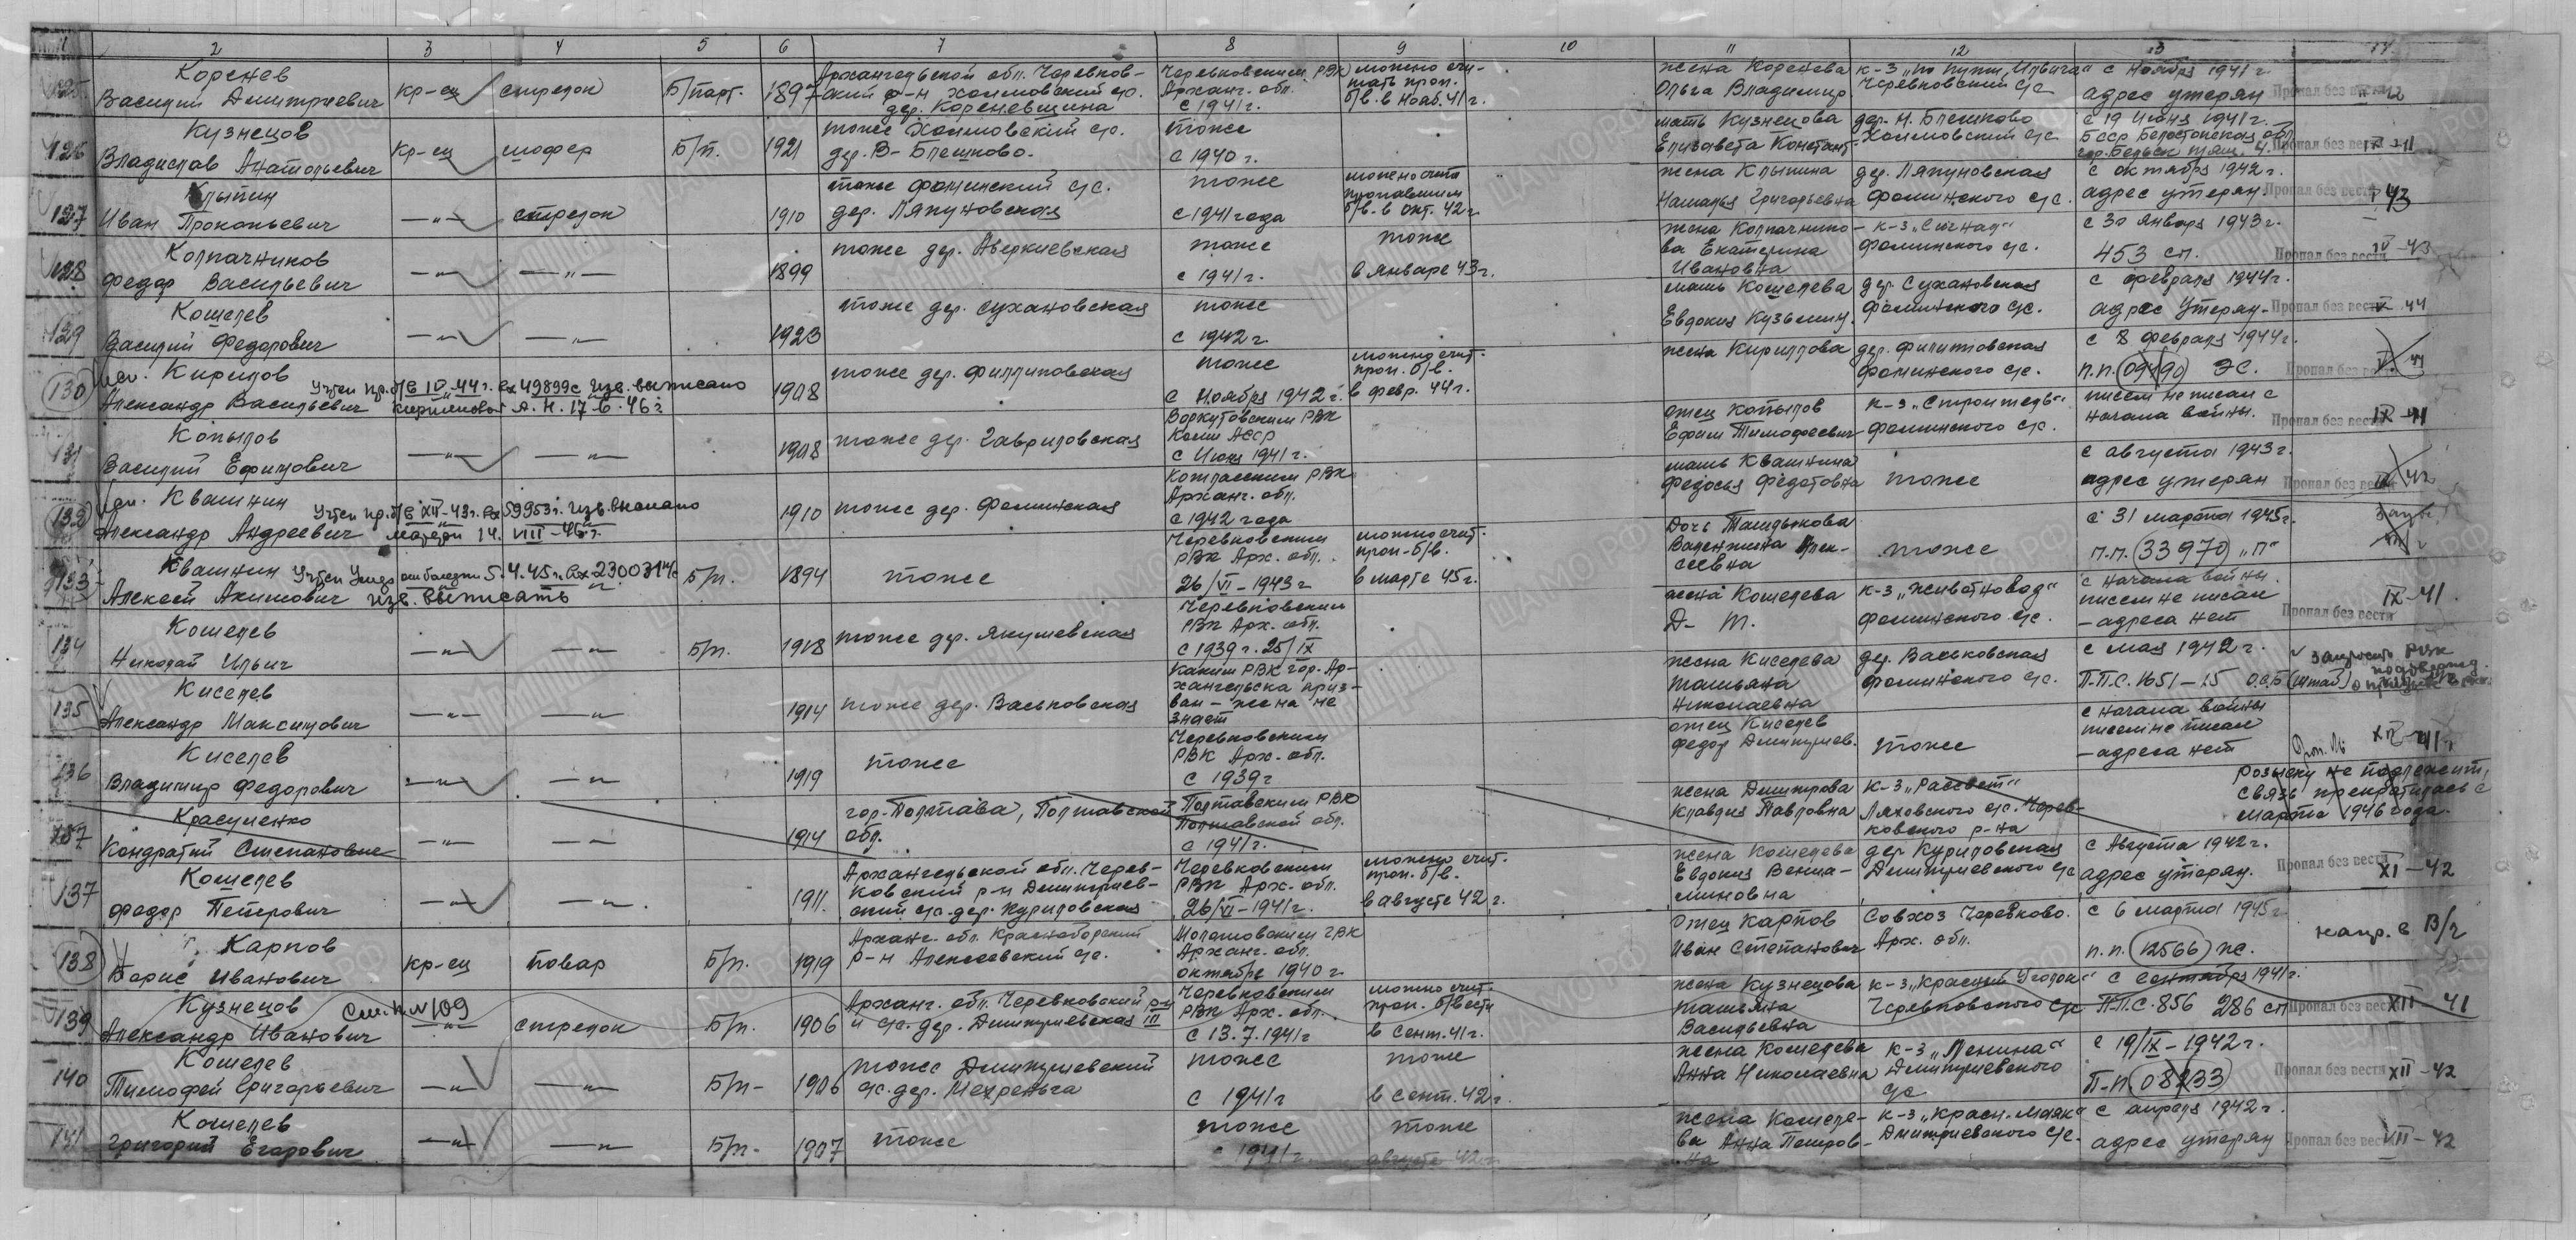 1 2 3 4 5 6 7 8 9 10 11 12 13 14
125 Коренев Василий Дмитриевич кр-ец стрелок Б/парт. 1897 Архангельской обл. Черевковский р-н Холмовский с/с. дер. Кореневщина Черевковским РВК Арханг. обл. с 1941 г. можно считать проп. б/в. в нояб. 41 г. жена Коренева Ольга Владимир к-з „По пути Ильича" Черевковский с/с с ноября 1941 г. адрес утерян Пропал без вести
126 Кузнецов Владислав Анатольевич кр-ец шофер Б/п. 1921 тоже Холмовский с/с. дер. В-Блешково. тоже с 1940 г. мать Кузнецова Елизавета Констант. дер. Н. Блешково Холмовский с/с с 19 июня 1941 г. БССР Белостокская обл. гор. Бельск Пропал без вести IX-41
127 Клыпин Иван Прокопьевич —"— стрелок 1910 тоже Фоминский с/с. дер. Ляпуновская тоже с 1941 года можно счит. пропавшим б/в. в окт. 42 г. жена Клыпина Наталья Григорьевна дер. Ляпуновская Фоминского с/с. с октября 1942 г. адрес утерян Пропал без вести 43
128 Колпачников Федор Васильевич —"— —"— 1899 тоже дер. Аверкиевская тоже с 1941 г. тоже в январе 43 г. жена Колпачникова Екатерина Ивановна к-з „Сигнал" Фоминского с/с. с 30 января 1943 г. 453 сп. Пропал без вести IV-43
129 Кошелев Василий Федорович —"— —"— 1923 тоже дер. Сухановская тоже с 1942 г. мать Кошелева Евдокия Кузьмин. дер. Сухановская Фоминского с/с. с февраля 1944 г. адрес утерян. Пропал без вести 44
130 Кирилов Александр Васильевич Учтен пр. б/в IV-44 г. вх 49899с изв. выписано Кирилловой А. Н. 17.6.46 г. 1908 тоже дер. Филиповская тоже с ноября 1942 г. можно счит. проп. б/в. в февр. 44 г. жена Кириллова дер. Филиповская Фоминского с/с. с 8 февраля 1944 г. п.п. 09490 ЭС. Пропал без вести
131 Копылов Василий Ефимович —"— —"— 1908 тоже дер. Гавриловская Воркутовским РВК Коми АССР с июня 1941 г. отец Копылов Ефим Тимофеевич к-з „Строитель" Фоминского с/с. писем не писал с начала войны. Пропал без вести IX-41
132 Квашнин Александр Андреевич Учтен пр. б/в XII-43 г. вх 59953 г. изв. выписано матери 14. VIII-46 г. 1910 тоже дер. Фоминская Котласским РВК Арханг. обл. с 1942 года мать Квашнина Федосья Федотовна тоже с августа 1943 г. адрес утерян Пропал без вести
133 Квашнин Алексей Акимович Учтен умер от болезни 5.4.45 г. изв. выписать Б/п. 1894 тоже Черевковским РВК Арх. обл. 26/VI-1943 г можно счит. проп-б/в. в марте 45 г. Дочь Валентина Алексеевна тоже с 31 марта 1945 г. п.п. 33970 „П"
134 Кошелев Николай Ильич —"— —"— Б/п. 1918 тоже дер. Якушевская Черевковским РВК Арх. обл. с 1939 г. 25/IX жена Кошелева Д- Т. к-з „Животновод" Фоминского с/с. с начала войны писем не писал - адреса нет Пропал без вести IX-41
135 Киселев Александр Максимович —"— —"— 1914 тоже дер. Васьковская Каким РВК гор. Архангельска призван - жена не знает жена Киселева Татьяна Николаевна дер. Васьковская Фоминского с/с. с мая 1942 г. П.П.С. 1651-15 О.С.Б (штаб)
136 Киселев Владимир Федорович —"— —"— 1919 тоже Черевковским РВК Арх. обл. с 1939 г отец Киселев Федор Дмитриев. тоже с начала войны писем не писал - адреса нет XII-41 г
137 Красуленко Кондратий Степанович —"— —"— 1914 гор. Полтава, Полтавской обл. Полтавским РВК Полтавской обл. с 1941 г. жена Димитрова Клавдия Павловна к-з „Рассвет" Ляховского с/с. Черевковского р-на Розыску не подлежит, связь прекратилась с марта 1946 года.
137 Кошелев Федор Петрович —"— —"— 1911. Архангельской обл. Черевковский р-н Дмитриевский с/с. дер. Куриловская Черевковским РВК Арх. обл. 26/VI-1941 г. можно счит. проп. б/в. в августе 42 г. жена Кошелева Евдокия Вениаминовна дер Куриловская Дмитриевского с/с с Августа 1942 г. адрес утерян. Пропал без вести XI-42
138 Карпов Борис Иванович кр-ец повар Б/п. 1919 Арханг. обл. Красноборский р-н Алексеевский с/с. Молотовским ГВК Арханг. обл. октябре 1940 г отец Карпов Иван Степанович Совхоз Черевково. Арх. обл. с 6 марта 1945 г п.п. 12566 пс. напр. в В/ч
139 Кузнецов Александр Иванович См. п. №109 —"— стрелок Б/п. 1906 Арханг. обл. Черевковский р-н с/с. дер. Дмитриевская III Черевковским РВК Арх. обл. с 13.7.1941 г можно счит. проп. б/вести в сент. 41 г. жена Кузнецова Татьяна Васильевна к-з „Красный Уголок" Черевковского с/с с сентября 1941 г. П.П.С. 856 286 сп Пропал без вести XII 41
140 Кошелев Тимофей Григорьевич —"— —"— Б/п- 1906 тоже Дмитриевский с/с. дер. Мехреньга тоже с 1941 г тоже в сент. 42 г. жена Кошелева Анна Николаевна к-з „Ленина" Дмитриевского с/с с 19/IX-1942 г. П.п. 08233 Пропал без вести XII-42
141 Кошелев Григорий Егорович —"— —"— Б/п- 1907 тоже тоже с 1941 г. тоже августе 42 г. жена Кошелева Анна Петровна к-з „Красн. Маяк" Дмитриевского с/с. с апреля 1942 г. адрес утерян Пропал без вести VII-42